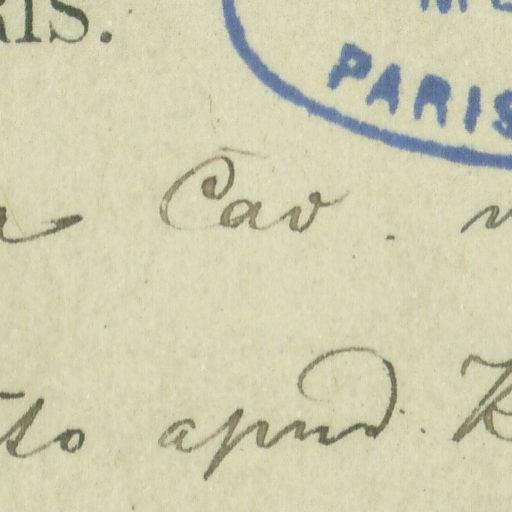 RIS.
PARIS
Cav.
apud.